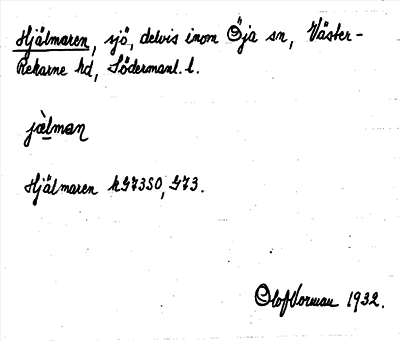 Hjälmaren, sjö, delvis inom Öja sn, Väster-
Rekarne hd, Södermanl. l.
jæ̀lman
Hjälmaren kG73SO, G73.
Olof Vorman 1932.